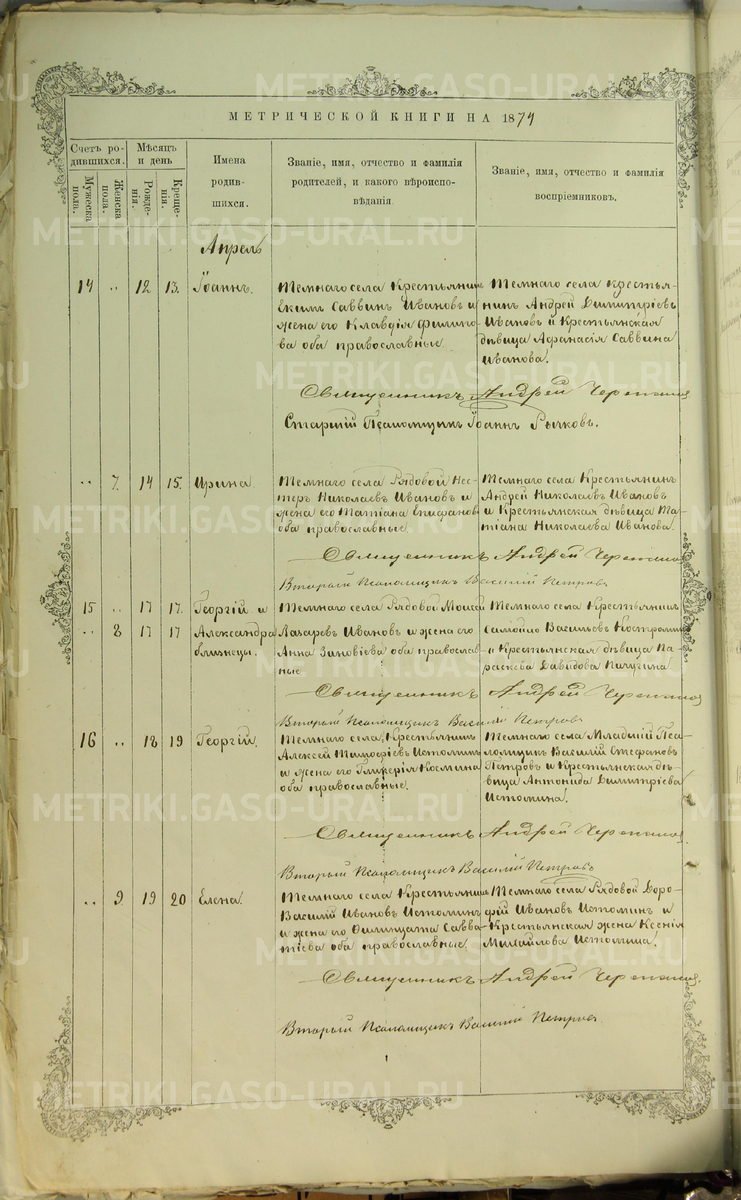 МЕТРИЧЕСКОЙ КНИГИ НА 1874
Счетъ родившихся.
Мужеска пола.
Женска пола.
Мѣсяцъ и день
Рожденія.
Крещенія.
Имена родившихся.
Званіе, имя, отчество и фамилія родителей, и какого вѣроисповѣданія.
Званіе, имя, отчество и фамилія воспріемниковъ.
Апрель
14 .. 12 13. Іоаннъ.
Темнаго села Крестьянинъ
Еким Саввинъ Ивановъ и
жена его Клавдія Филипо-
ва оба православные
Темнаго села крестья-
нинъ Андрей Димитріевъ
Ивановъ и Крестьянская
дѣвица Афанасія Саввина
Иванова.
Священникъ Андрей
Старшій Псаломщикъ Іоаннъ Рычков.
.. 7. 14 15. Ирина
Темнаго села Рядовой Нес-
теръ Николаевъ Ивановъ и
жена его Татіана Епифанов
оба православные
Темнаго села Крестьянинъ
Андрей Николаевъ Ивановъ
и Крестьянская дѣвица Та-
тіана Николаева Иванова.
Священникъ Андрей
Второй Псаломщикъ Василий Петровъ
15 .. 17 17. Георгій и
.. 8 17 17 Александра
близнецы.
Темнаго села Рядовой Моисей
Лазаревъ Ивановъ и жена его
Анна Зиновіева оба православ-
ные
Темнаго села Крестьянинъ
Самойло Васильевъ Костромин
и Крестьянская дѣвица Па-
раскева Давыдова Пичугина
Священникъ Андрей
Второй Псаломщикъ Василій Петровъ
16 .. 18 19 Георгий.
Темнаго села, Крестьянинъ
Алексей Тимофіевъ Истоминъ
и жена его Гликерія Космина
оба православные.
Темнаго села Младшій Пса-
ломщикъ Василій Стефановъ
Петровъ и Крестьянская дѣ-
вица Антонида Димитріева
Истомина.
Священникъ Андрей
Второй Псаломщикъ Василій Петровъ
.. 9 19 20 Елена.
Темнаго села Крестьянинъ
Василій Ивановъ Истоминъ
и жена его Филицата Савва-
тіева оба православные.
Темнаго села Рядовой Доро-
фій Ивановъ Истоминъ и
Крестьянская жена Ксенія
Михайлова Истомина.
Священникъ Андрей
Второй Псаломщикъ Василій Петровъ
METRIKI.GASO-URAL.RU